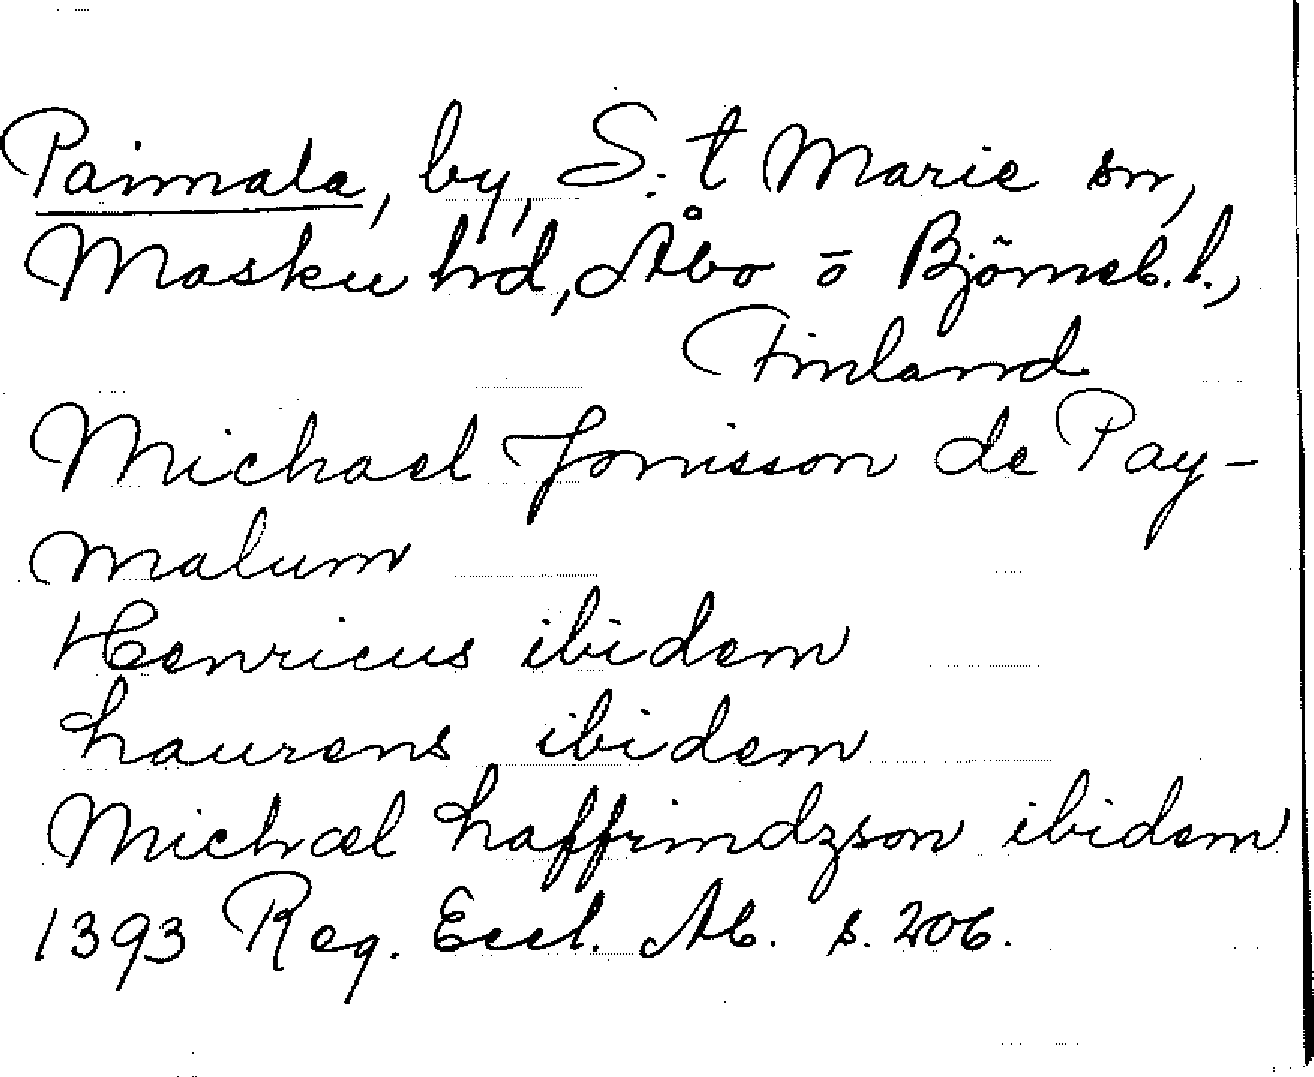 Paimala, by, S:t Marie sn,
Masku hd, Åbo o Björneb. l.,
Finland
Michael Jonisson de Pay-
malum
Henricus ibidem
Laurens ibidem
Michæl Laffrindzson ibidem
1393 Reg. Eccl. Ab. s. 206.